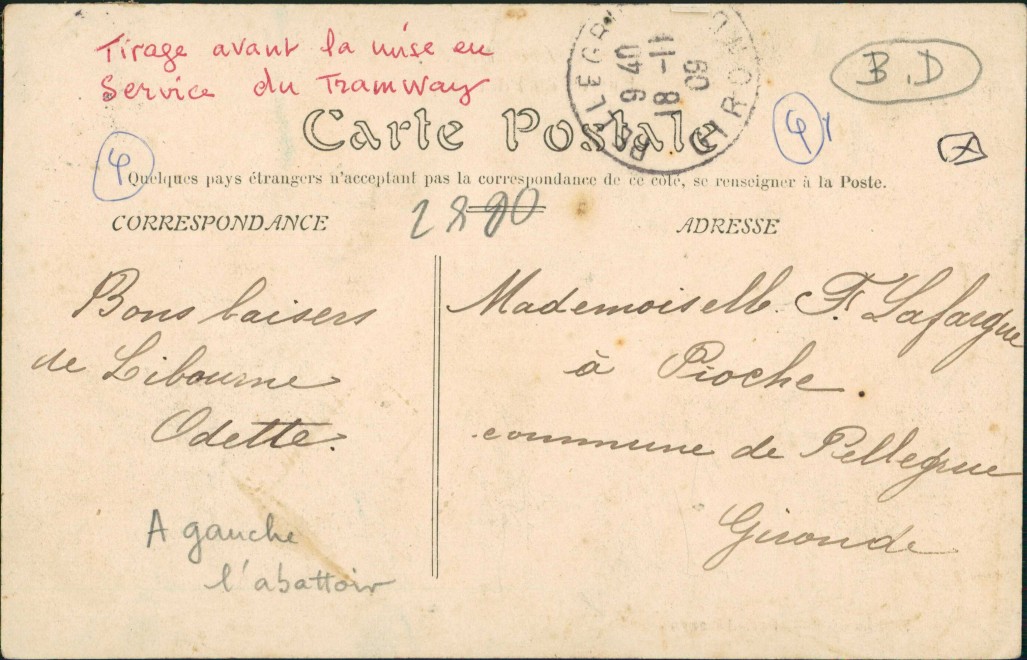 Tirage avant la mise en
Service du Tramway
B.D
Carte Postale
9-40
18-11
09
GIRONDE
Quelques pays étrangers n'acceptant pas la correspondance de ce côté, se renseigner à la Poste.
CORRESPONDANCE
ADRESSE
Bons baisers
de Libourne
Odette.
Mademoiselle F. Lafargue
à Pioche.
commune de Pellegrue
Gironde
A gauche
l'abattoir